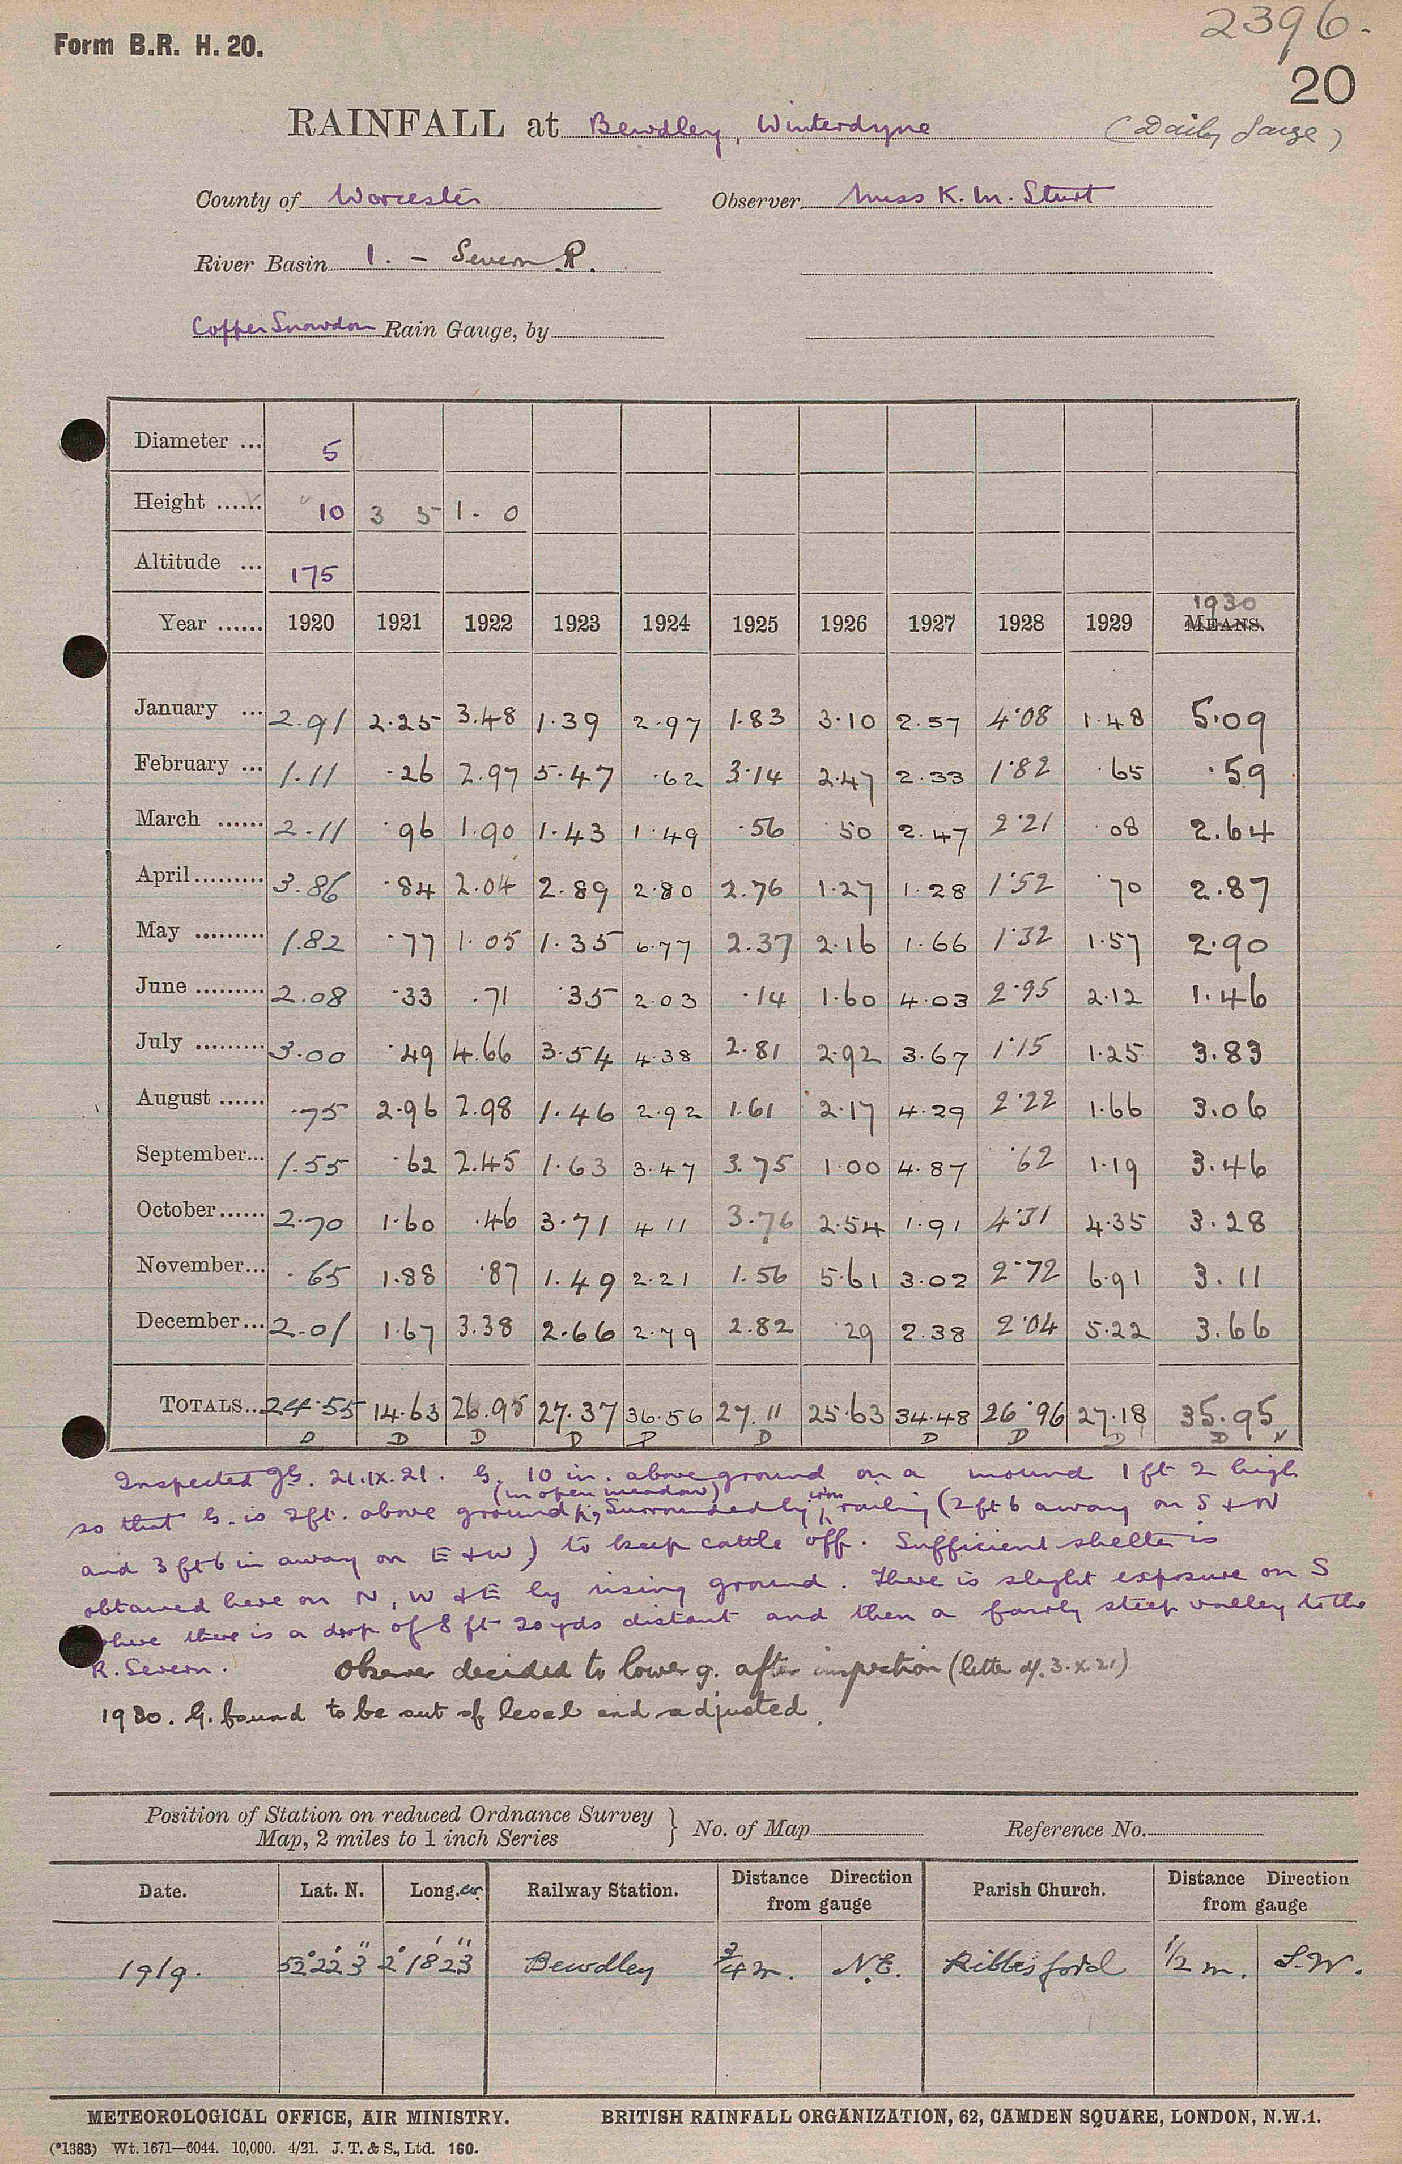 2396.
Form B.R. H. 20.
20
RAINFALL at Bewdley, Winterdyne (Daily Gauge)
County of Worcester Observer Miss K. M. Sturt
River Basin 1. - Severn R.
Copper Snowdon Rain Gauge, by
Diameter ... 5
Height ...... 10 3 5 1 . 0
Altitude ... 175
1930
Year ...... 1920 1921 1922 1923 1924 1925 1926 1927 1928 1929 MEANS.
January ... 2.91 2.25 3.48 1.39 2.97 1.83 3.10 2.57 4.08 1.48 5.09
February ... 1.11 .26 2.97 5.47 .62 3.14 2.47 2.33 1.82 .65 .59
March ...... 2.11 .96 1.90 1.43 1.49 .56 .50 2.47 2.21 .08 2.64
April......... 3.86 .84 2.04 2.89 2.80 2.76 1.27 1.28 1.52 .70 2.87
May ......... 1.82 .77 1.05 1.35 6.77 2.37 2.16 1.66 1.32 1.57 2.90
June ......... 2.08 .33 .71 .35 2.03 .14 1.60 4.03 2.95 2.12 1.46
July ......... 3.00 .49 4.66 3.54 4.38 2.81 2.92 3.67 1.15 1.25 3.83
August ...... .75 2.96 2.98 1.46 2.92 1.61 2.17 4.29 2.22 1.66 3.06
September... 1.55 .62 2.45 1.63 3.47 3.75 1.00 4.87 .62 1.19 3.46
October...... 2.70 1.60 .46 3.71 4.11 3.76 2.54 1.91 4.31 4.35 3.28
November... .65 1.88 .87 1.49 2.21 1.56 5.61 3.02 2.72 6.91 3.11
December... 2.01 1.67 3.38 2.66 2.79 2.82 .29 2.38 2.04 5.22 3.66
TOTALS... 24.55 14.63 26.95 27.37 36.56 27.11 25.63 34.48 26.96 27.18 35.95
D D D D D D D D D D
Inspected JG. 21.IX.21. G. 10 in. above ground on a mound 1 ft 2 high
(in open meadow) iron
so that G. is 2ft. above ground, Surrounded by railing (2 ft 6 away on S + N
and 3 ft 6 in away on E + W) to keep cattle off. Sufficient shelter is
obtained here on N, W + E by rising ground. There is slight exposure on S
where there is a drop of 8 ft 20 yds distant and then a fairly steep valley to the
R. Severn. Observer decided to lower g. after inspection (letter of. 3.X.21)
1930. G. found to be out of level and adjusted.
Position of Station on reduced Ordnance Survey
Map, 2 miles to 1 inch Series } No. of Map Reference No.
Date. Lat. N. Long. W. Railway Station. Distance Direction from gauge Parish Church. Distance Direction from gauge
1919. 52° 22' 3" 2° 18' 23" Bewdley 3/4 m. N.E. Ribbesford 1/2 m. S.W.
METEOROLOGICAL OFFICE, AIR MINISTRY. BRITISH RAINFALL ORGANIZATION, 62, CAMDEN SQUARE, LONDON, N.W.1.
(*1383) Wt. 1671—6044. 10,000. 4/21. J. T. & S., Ltd. 160.